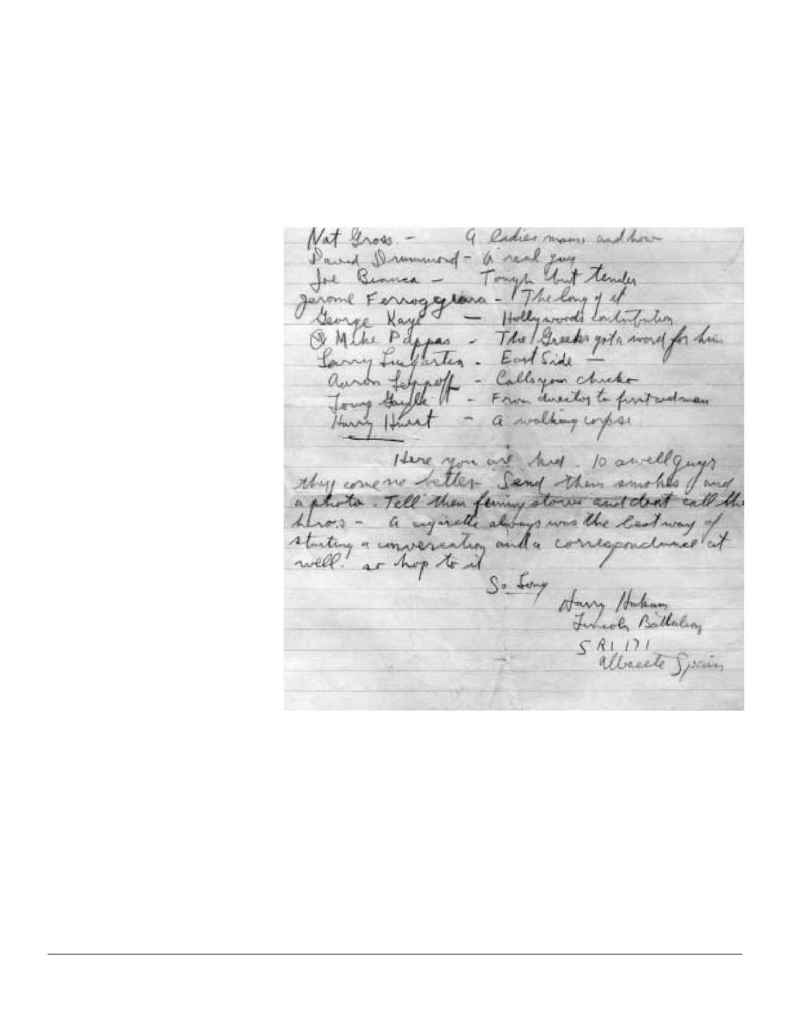 Nat Gross - A ladies mans and how
David Drummond - A real guy
Joe Bianca - Tough but tender
Jerome Ferroggiara - The long of it
George Kaye - Hollywoods contribution
Mike Pappas - The Greeks got a word for him
Larry - East Side -
Aaron - Calls you chicko
Tony - From director to first aid man
Harry Hurst - A walking corpse
Here you are kid. 10 swell guys
they come no better. Send them smokes and
a photo. Tell them funny stories and dont call them
heros - A cigarette always was the best way of
starting a conversation and a correspondance at
well. so hop to it
So Long
Harry Hakam
Lincoln Battalion
S R I 171
Albacete Spain